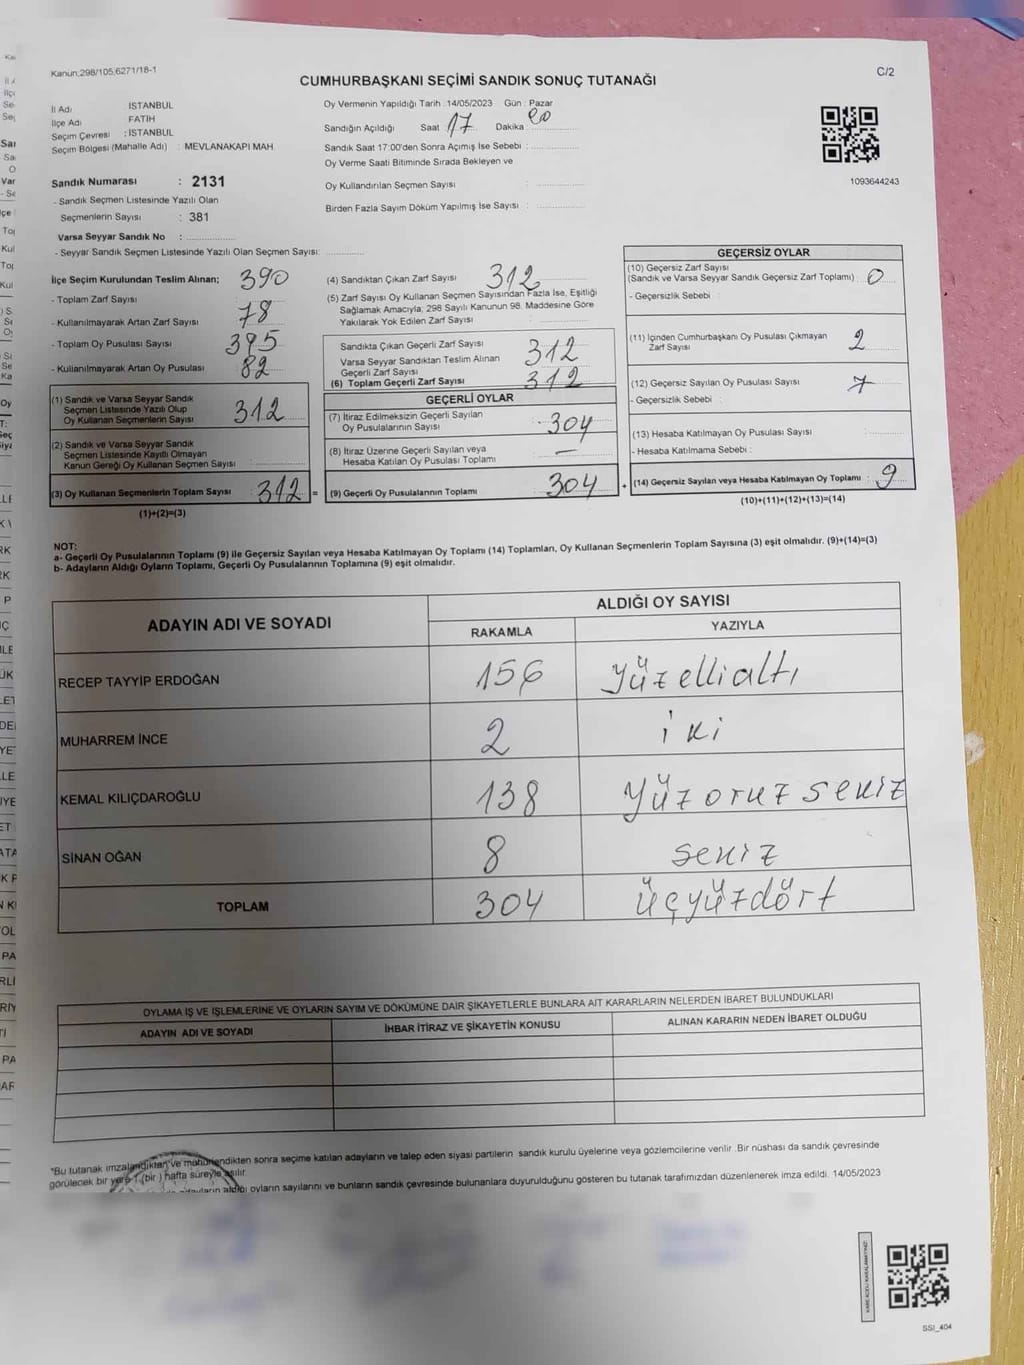 Kanun;298/105;6271/18-1
C/2
CUMHURBAŞKANI SEÇİMİ SANDIK SONUÇ TUTANAĞI
İl Adı ISTANBUL
İlçe Adı FATIH
Seçim Çevresi : ISTANBUL
Seçim Bölgesi (Mahalle Adı) : MEVLANAKAPI MAH
Sandık Numarası : 2131
- Sandık Seçmen Listesinde Yazılı Olan
Seçmenlerin Sayısı : 381
Varsa Seyyar Sandık No :
- Seyyar Sandık Seçmen Listesinde Yazılı Olan Seçmen Sayısı:
Oy Vermenin Yapıldığı Tarih : 14/05/2023 Gün : Pazar
Sandığın Açıldığı Saat 17 Dakika 00
Sandık Saat 17:00'den Sonra Açımış İse Sebebi :
Oy Verme Saati Bitiminde Sırada Bekleyen ve
Oy Kullandırılan Seçmen Sayısı :
Birden Fazla Sayım Döküm Yapılmış İse Sayısı :
1093644243
İlçe Seçim Kurulundan Teslim Alınan; 390
- Toplam Zarf Sayısı
- Kullanılmayarak Artan Zarf Sayısı 78
- Toplam Oy Pusulası Sayısı 395
- Kullanılmayarak Artan Oy Pusulası 82
(1) Sandık ve Varsa Seyyar Sandık
Seçmen Listesinde Yazılı Olup
Oy Kullanan Seçmenlerin Sayısı 312
(2) Sandık ve Varsa Seyyar Sandık
Seçmen Listesinde Kayıtlı Olmayan
Kanun Gereği Oy Kullanan Seçmen Sayısı
(3) Oy Kullanan Seçmenlerin Toplam Sayısı : 312 =
(1)+(2)=(3)
(4) Sandıktan Çıkan Zarf Sayısı 312
(5) Zarf Sayısı Oy Kullanan Seçmen Sayısından Fazla İse, Eşitliği
Sağlamak Amacıyla, 298 Sayılı Kanunun 98. Maddesine Göre
Yakılarak Yok Edilen Zarf Sayısı :
Sandıkta Çıkan Geçerli Zarf Sayısı 312
Varsa Seyyar Sandıktan Teslim Alınan
Geçerli Zarf Sayısı
(6) Toplam Geçerli Zarf Sayısı 312
GEÇERLİ OYLAR
(7) İtiraz Edilmeksizin Geçerli Sayılan
Oy Pusulalarının Sayısı 304
(8) İtiraz Üzerine Geçerli Sayılan veya
Hesaba Katılan Oy Pusulası Toplamı –
(9) Geçerli Oy Pusulalarının Toplamı 304 +
GEÇERSİZ OYLAR
(10) Geçersiz Zarf Sayısı
(Sandık ve Varsa Seyyar Sandık Geçersiz Zarf Toplamı) : 0
- Geçersizlik Sebebi :
(11) İçinden Cumhurbaşkanı Oy Pusulası Çıkmayan
Zarf Sayısı 2
(12) Geçersiz Sayılan Oy Pusulası Sayısı 7
- Geçersizlik Sebebi :
(13) Hesaba Katılmayan Oy Pusulası Sayısı
- Hesaba Katılmama Sebebi :
(14) Geçersiz Sayılan veya Hesaba Katılmayan Oy Toplamı : 9
(10)+(11)+(12)+(13)=(14)
NOT:
a- Geçerli Oy Pusulalarının Toplamı (9) ile Geçersiz Sayılan veya Hesaba Katılmayan Oy Toplamı (14) Toplamları, Oy Kullanan Seçmenlerin Toplam Sayısına (3) eşit olmalıdır. (9)+(14)=(3)
b- Adayların Aldığı Oyların Toplamı, Geçerli Oy Pusulalarının Toplamına (9) eşit olmalıdır.
ADAYIN ADI VE SOYADI ALDIĞI OY SAYISI
RAKAMLA YAZIYLA
RECEP TAYYİP ERDOĞAN 156 Yüzellialtı
MUHARREM İNCE 2 iki
KEMAL KILIÇDAROĞLU 138 Yüzotuzsekiz
SİNAN OĞAN 8 sekiz
TOPLAM 304 üçyüzdört
OYLAMA İŞ VE İŞLEMLERİNE VE OYLARIN SAYIM VE DÖKÜMÜNE DAİR ŞİKAYETLERLE BUNLARA AİT KARARLARIN NELERDEN İBARET BULUNDUKLARI
ADAYIN ADI VE SOYADI İHBAR İTİRAZ VE ŞİKAYETİN KONUSU ALINAN KARARIN NEDEN İBARET OLDUĞU
*Bu tutanak imzalandıktan ve mühürlendikten sonra seçime katılan adayların ve talep eden siyasi partilerin sandık kurulu üyelerine veya gözlemcilerine verilir. Bir nüshası da sandık çevresinde
görülecek bir yere 1 (bir) hafta süreyle asılır.
oyların sayılarını ve bunların sandık çevresinde bulunanlara duyurulduğunu gösteren bu tutanak tarafımızdan düzenlenerek imza edildi. 14/05/2023
SSİ_404